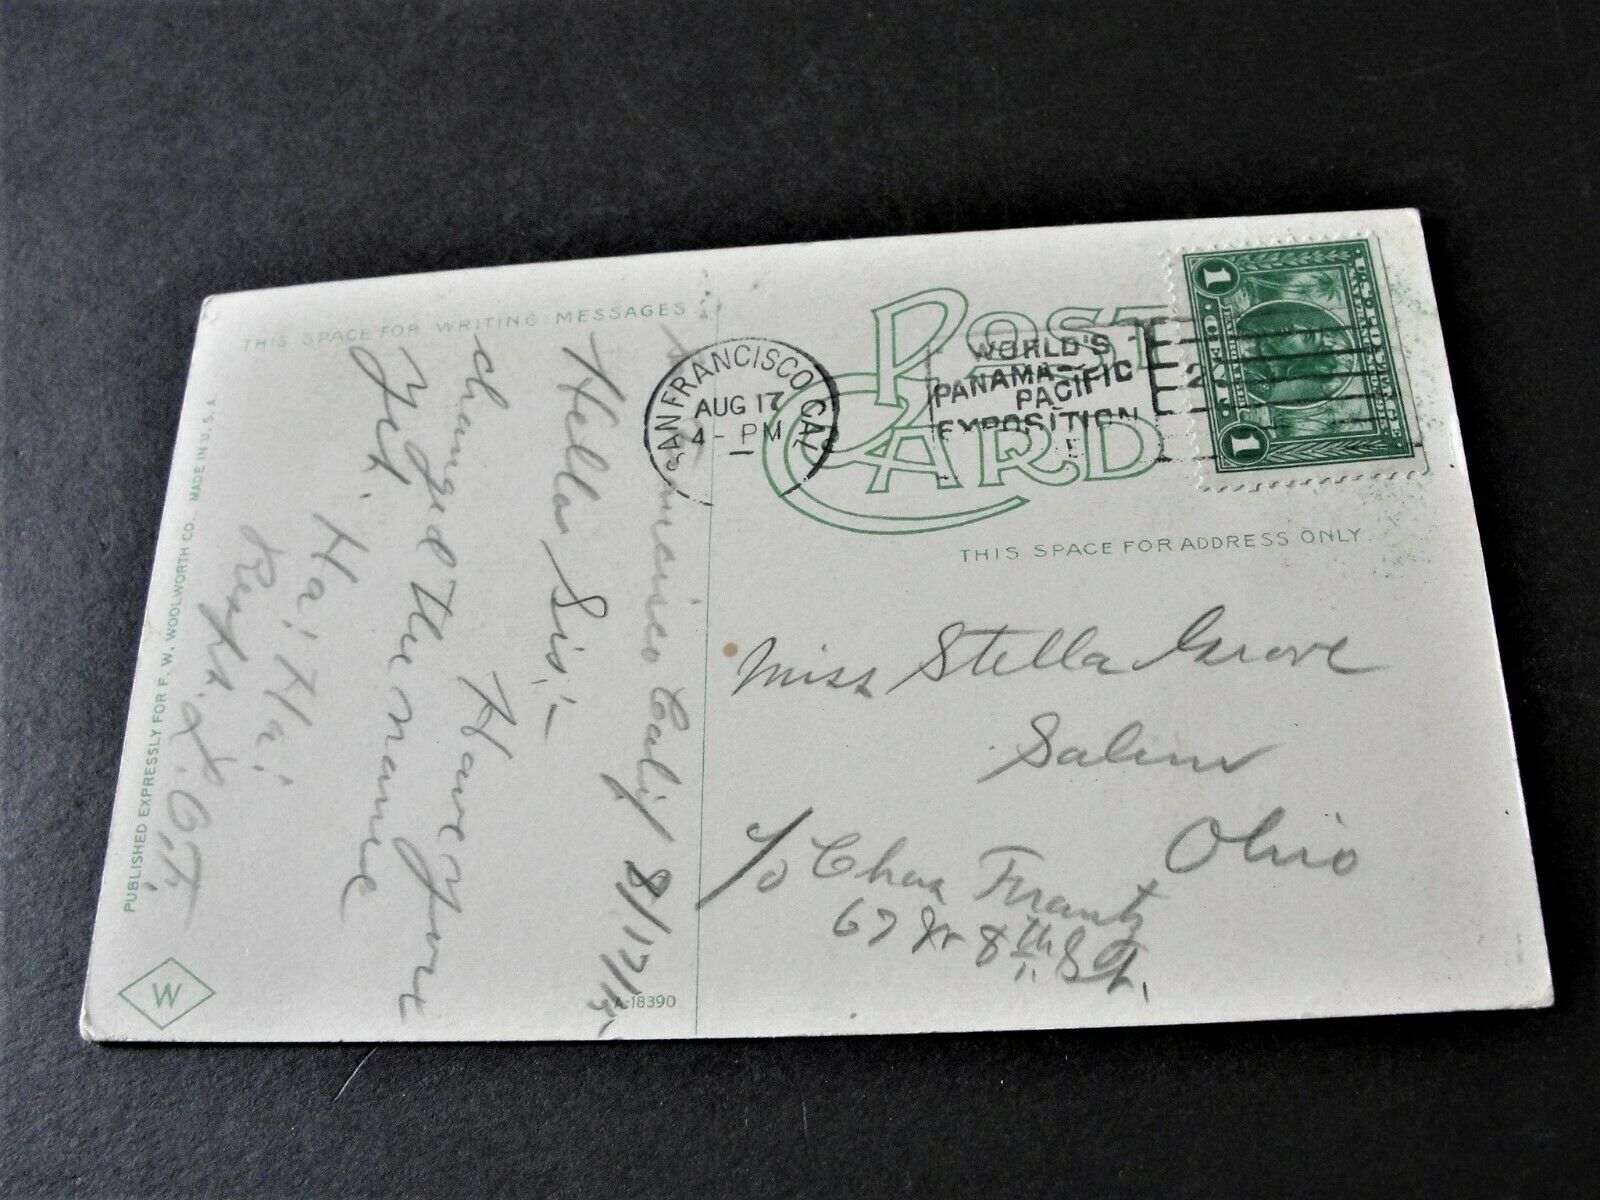 THIS SPACE FOR WRITING MESSAGES
San Francisco Calif 8/17/15
Hello Sis:-
Have you
changed the name
Yit.
Ha! Ha!
PUBLISHED EXPRESSLY FOR F. W. WOOLWORTH CO. MADE IN U.S.A.
W
A-18390
POST CARD
SAN FRANCISCO CAL
AUG 17
4-PM
WORLD'S
PANAMA-
PACIFIC
EXPOSITION
1 CENT 1
THIS SPACE FOR ADDRESS ONLY.
Miss Stella Grove
Salem
Ohio
c/o Chas Frantz
67 W 8th St.